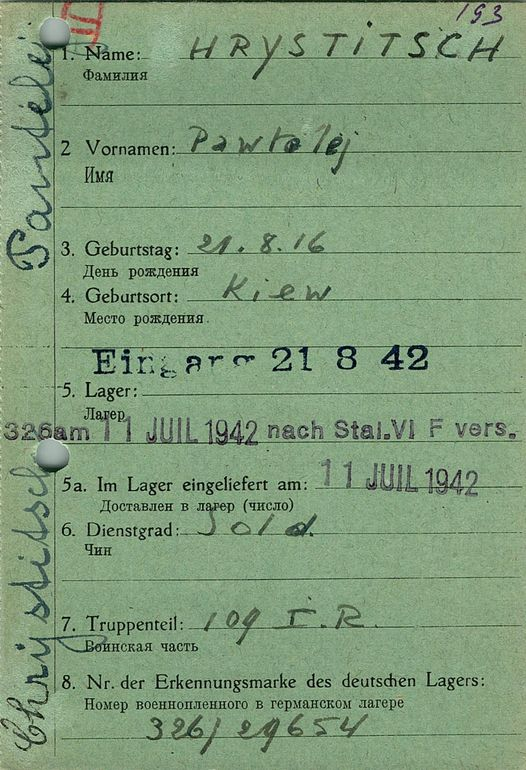 193
III
1. Name: HRYSTITSCH
Фамилия
2 Vornamen: Pawtelej
Имя
3. Geburtstag: 21.8.16
День рождения
4. Geburtsort: Kiew
Место рождения
Eingang 21 8 42
5. Lager:
Лагер
326 am 11 JUIL 1942 nach Stal. VI F vers.
5a. Im Lager eingeliefert am: 11 JUIL 1942
Доставлен в лагер (число)
6. Dienstgrad: Sold.
Чин
7. Truppenteil: 109 I.R.
Воинская часть
8. Nr. der Erkennungsmarke des deutschen Lagers:
Номер военнопленного в германском лагере
326/29654
Chrystitsch Pantelei